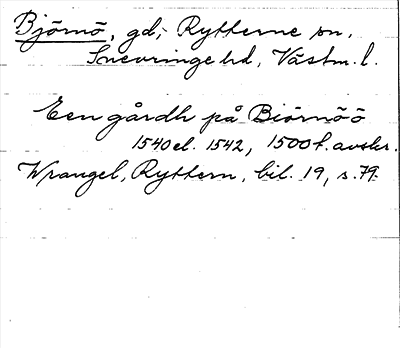 Björnö, gd, Rytterne sn,
Snevringe hd, Västm. l.
Een gårdh på Biörnöö
1540 el. 1542, 1500 t. avskr.
Wrangel, Ryttern, bil. 19, s. 79.